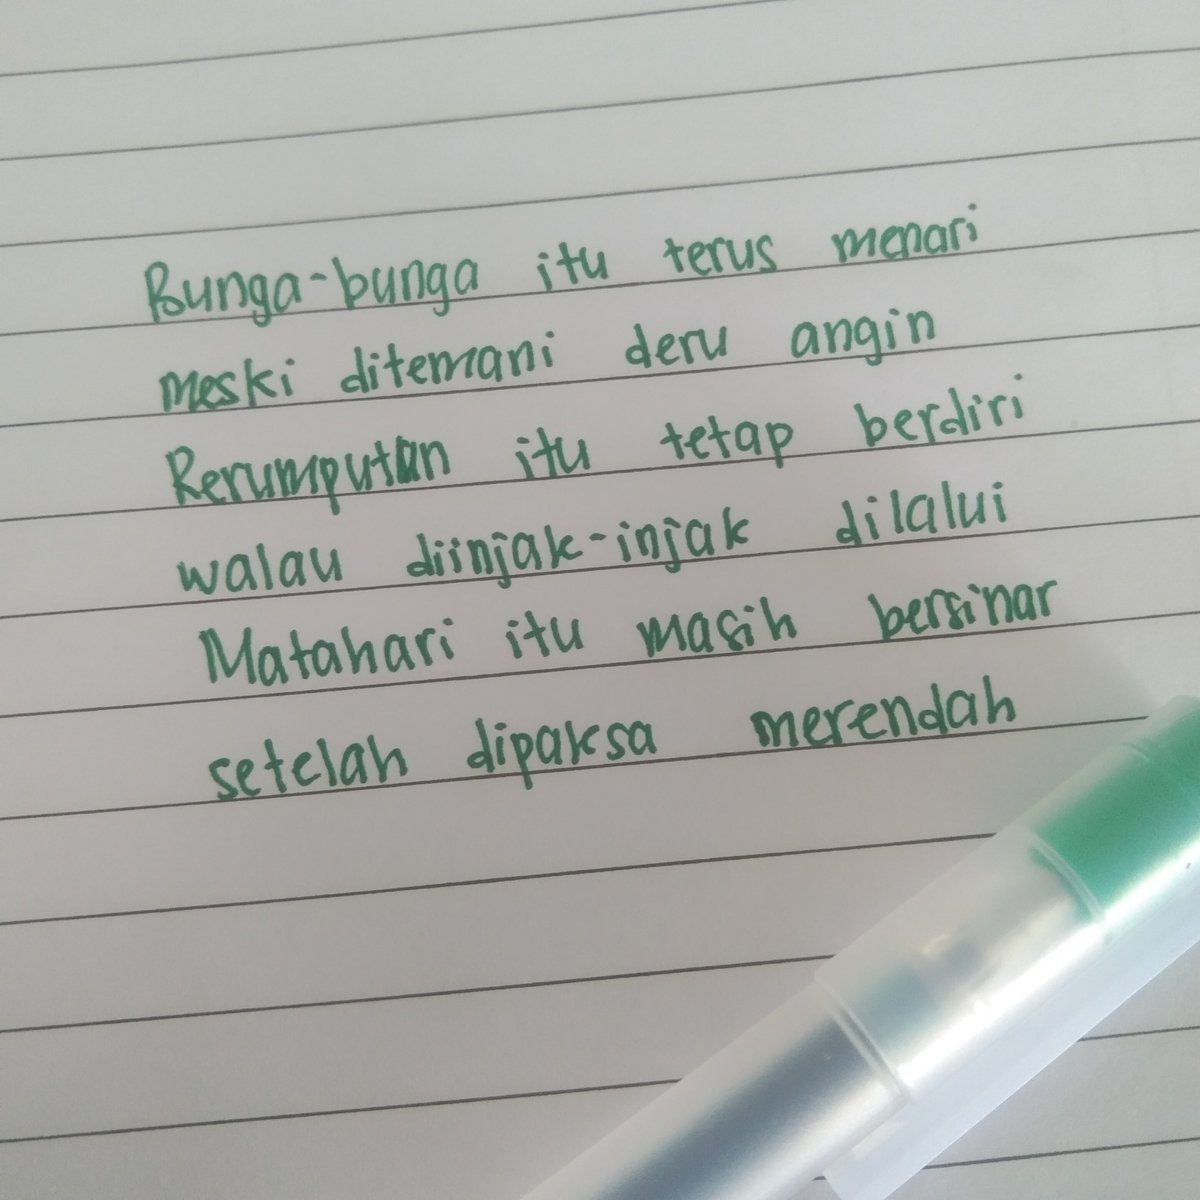 Bunga-bunga itu terus menari
meski ditemani deru angin
Rerumputan itu tetap berdiri
walau diinjak-injak dilalui
Matahari itu masih bersinar
setelah dipaksa merendah